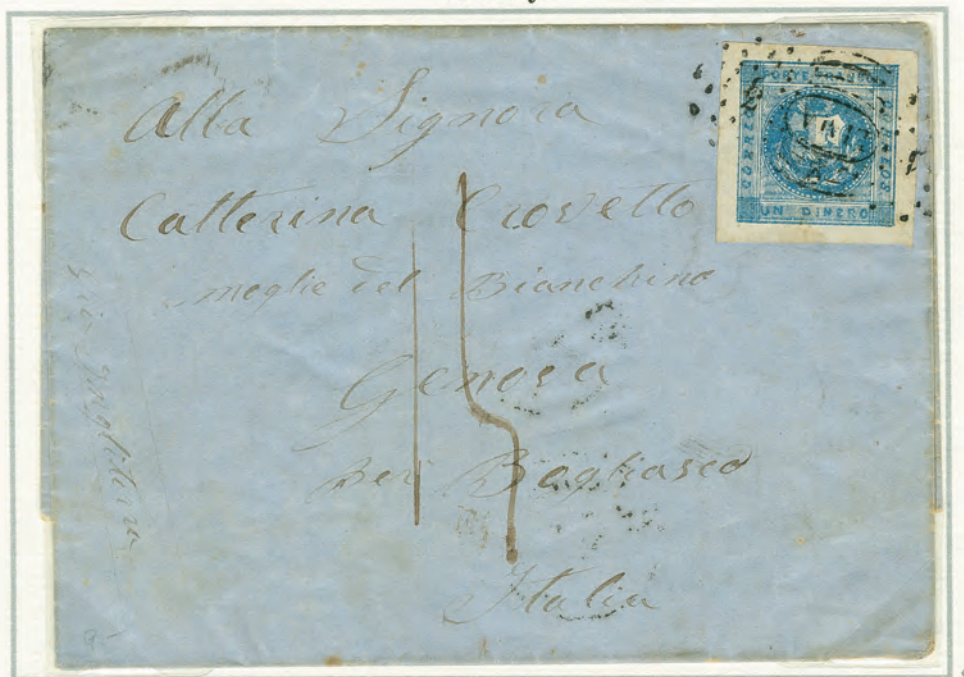 Alla Signora
Catterina Crovetto
moglie del Bianchino
Genova
per Bogliasco
Italia
15
PORTE FRANCO
CORREOS
UN DINERO